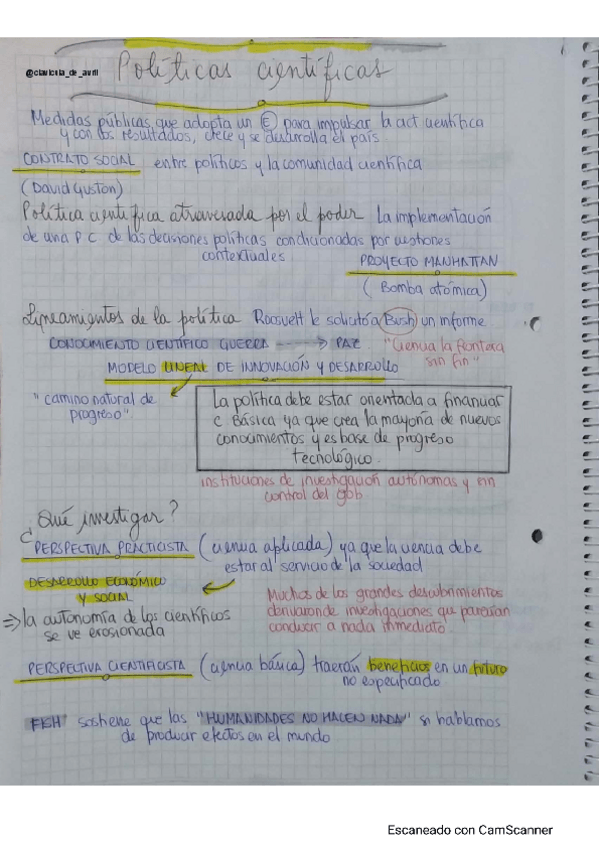 @clavicula_de_avril
Políticas científicas
Medidas públicas que adopta un E para impulsar la act científica
y con los resultados, crece y se desarrolla el país
CONTRATO SOCIAL entre políticos y la comunidad científica
(David Guston)
Política científica atravesada por el poder La implementación
de una P C de las decisiones políticas condicionadas por cuestiones
contextuales
PROYECTO MANHATTAN
(Bomba atómica)
Lineamientos de la política Roosvelt le solicitó a Bush un informe
CONOCIMIENTO CIENTÍFICO GUERRA ----> PAZ "Ciencia la frontera
sin fin"
MODELO LINEAL DE INNOVACIÓN Y DESARROLLO
"camino natural de
progreso"
La política debe estar orientada a financiar
C Básica ya que crea la mayoría de nuevos
conocimientos y es base de progreso
tecnológico.
instituciones de investigación autónomas y sin
control del gob
¿Qué investigar?
PERSPECTIVA PRACTICISTA (ciencia aplicada) ya que la ciencia debe
estar al servicio de la sociedad
DESARROLLO ECONÓMICO
Y SOCIAL
Muchos de los grandes descubrimientos
derivaron de investigaciones que parecían
conducir a nada inmediato
=> la autonomía de los científicos
se ve erosionada
PERSPECTIVA CIENTIFICISTA (ciencia básica) traerán beneficios en un futuro
no especificado
FISH sostiene que las "HUMANIDADES NO HACEN NADA" si hablamos
de producir efectos en el mundo
Escaneado con CamScanner